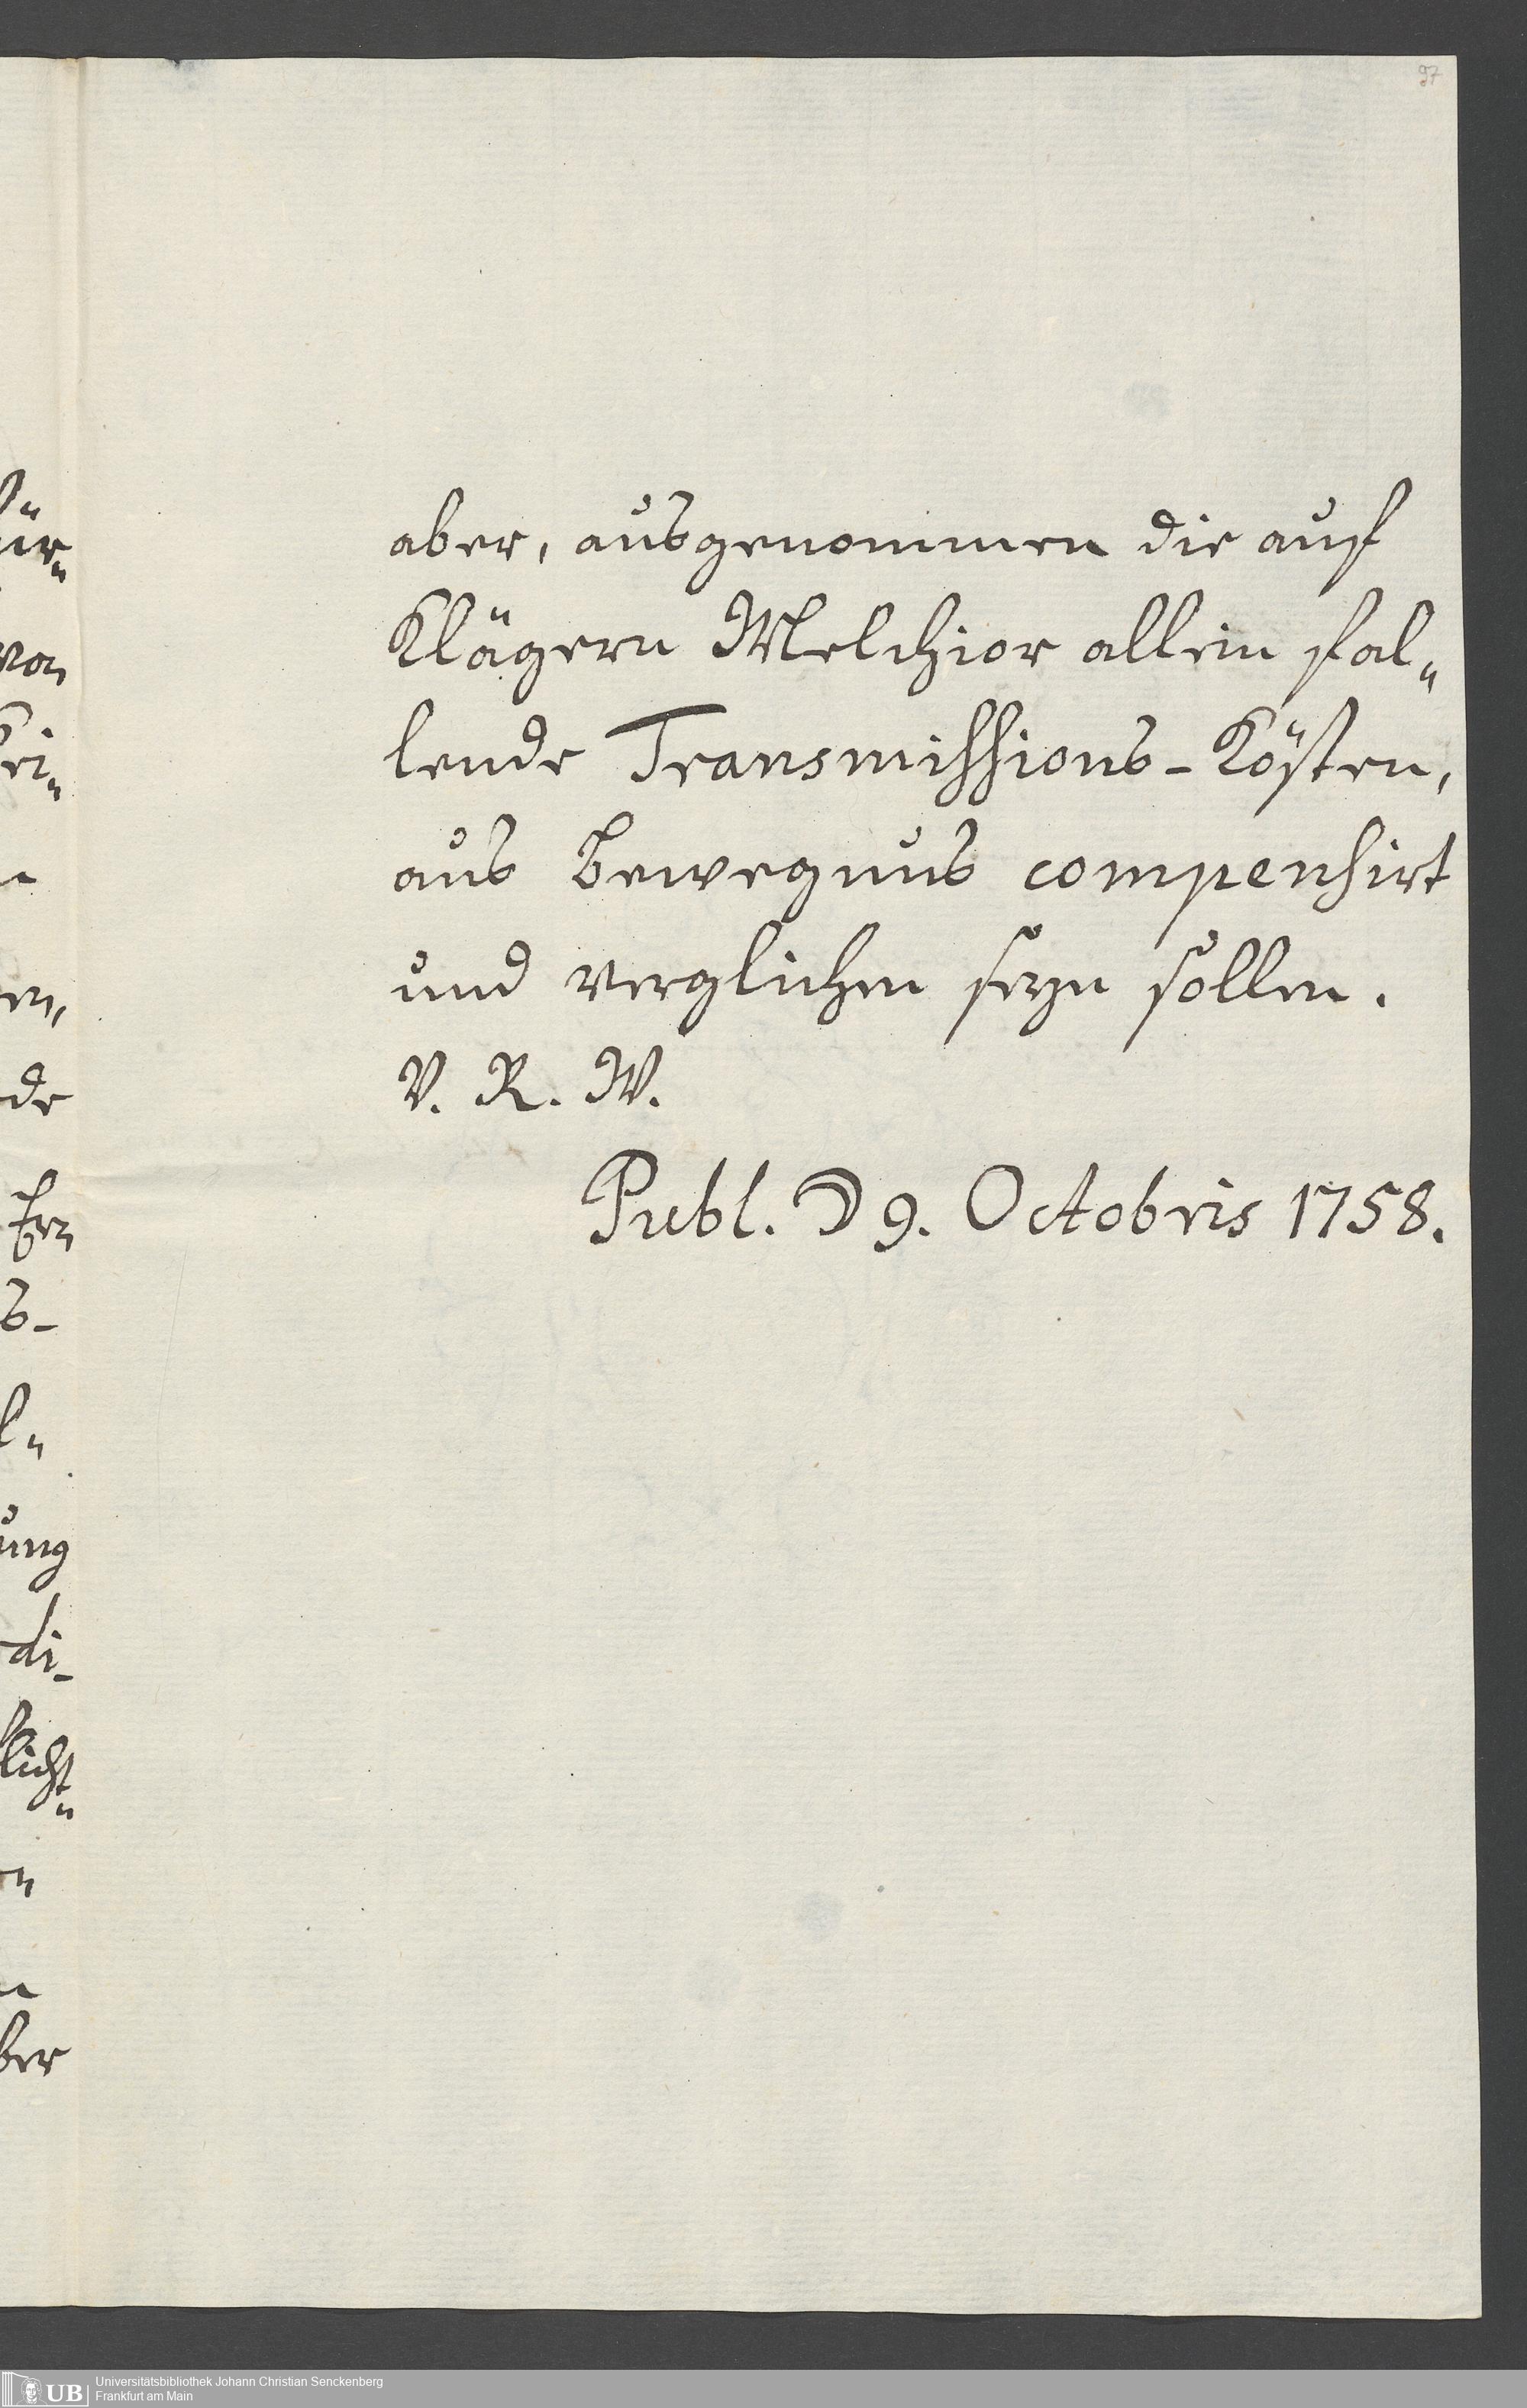 97
aber, ausgenommen die auf
Klägern Melchior allein fal„
lende Transmissions-Kösten,
aus Bewegnus compensirt
und verglichen seyn sollen.
V. R. W.
Publ. ☽ 9. Octobris 1758.
ür„
von
bei„
en,
de
ben
s-
l„
ung
di-
licht„
en
ber
UB Universitätsbibliothek Johann Christian Senckenberg
Frankfurt am Main